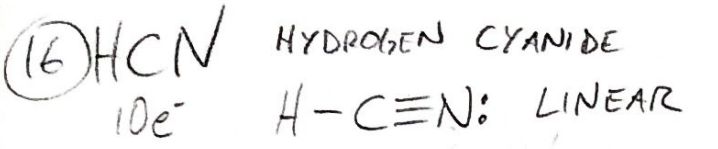 16 HCN HYDROGEN CYANIDE
10e⁻ H–C≡N: LINEAR